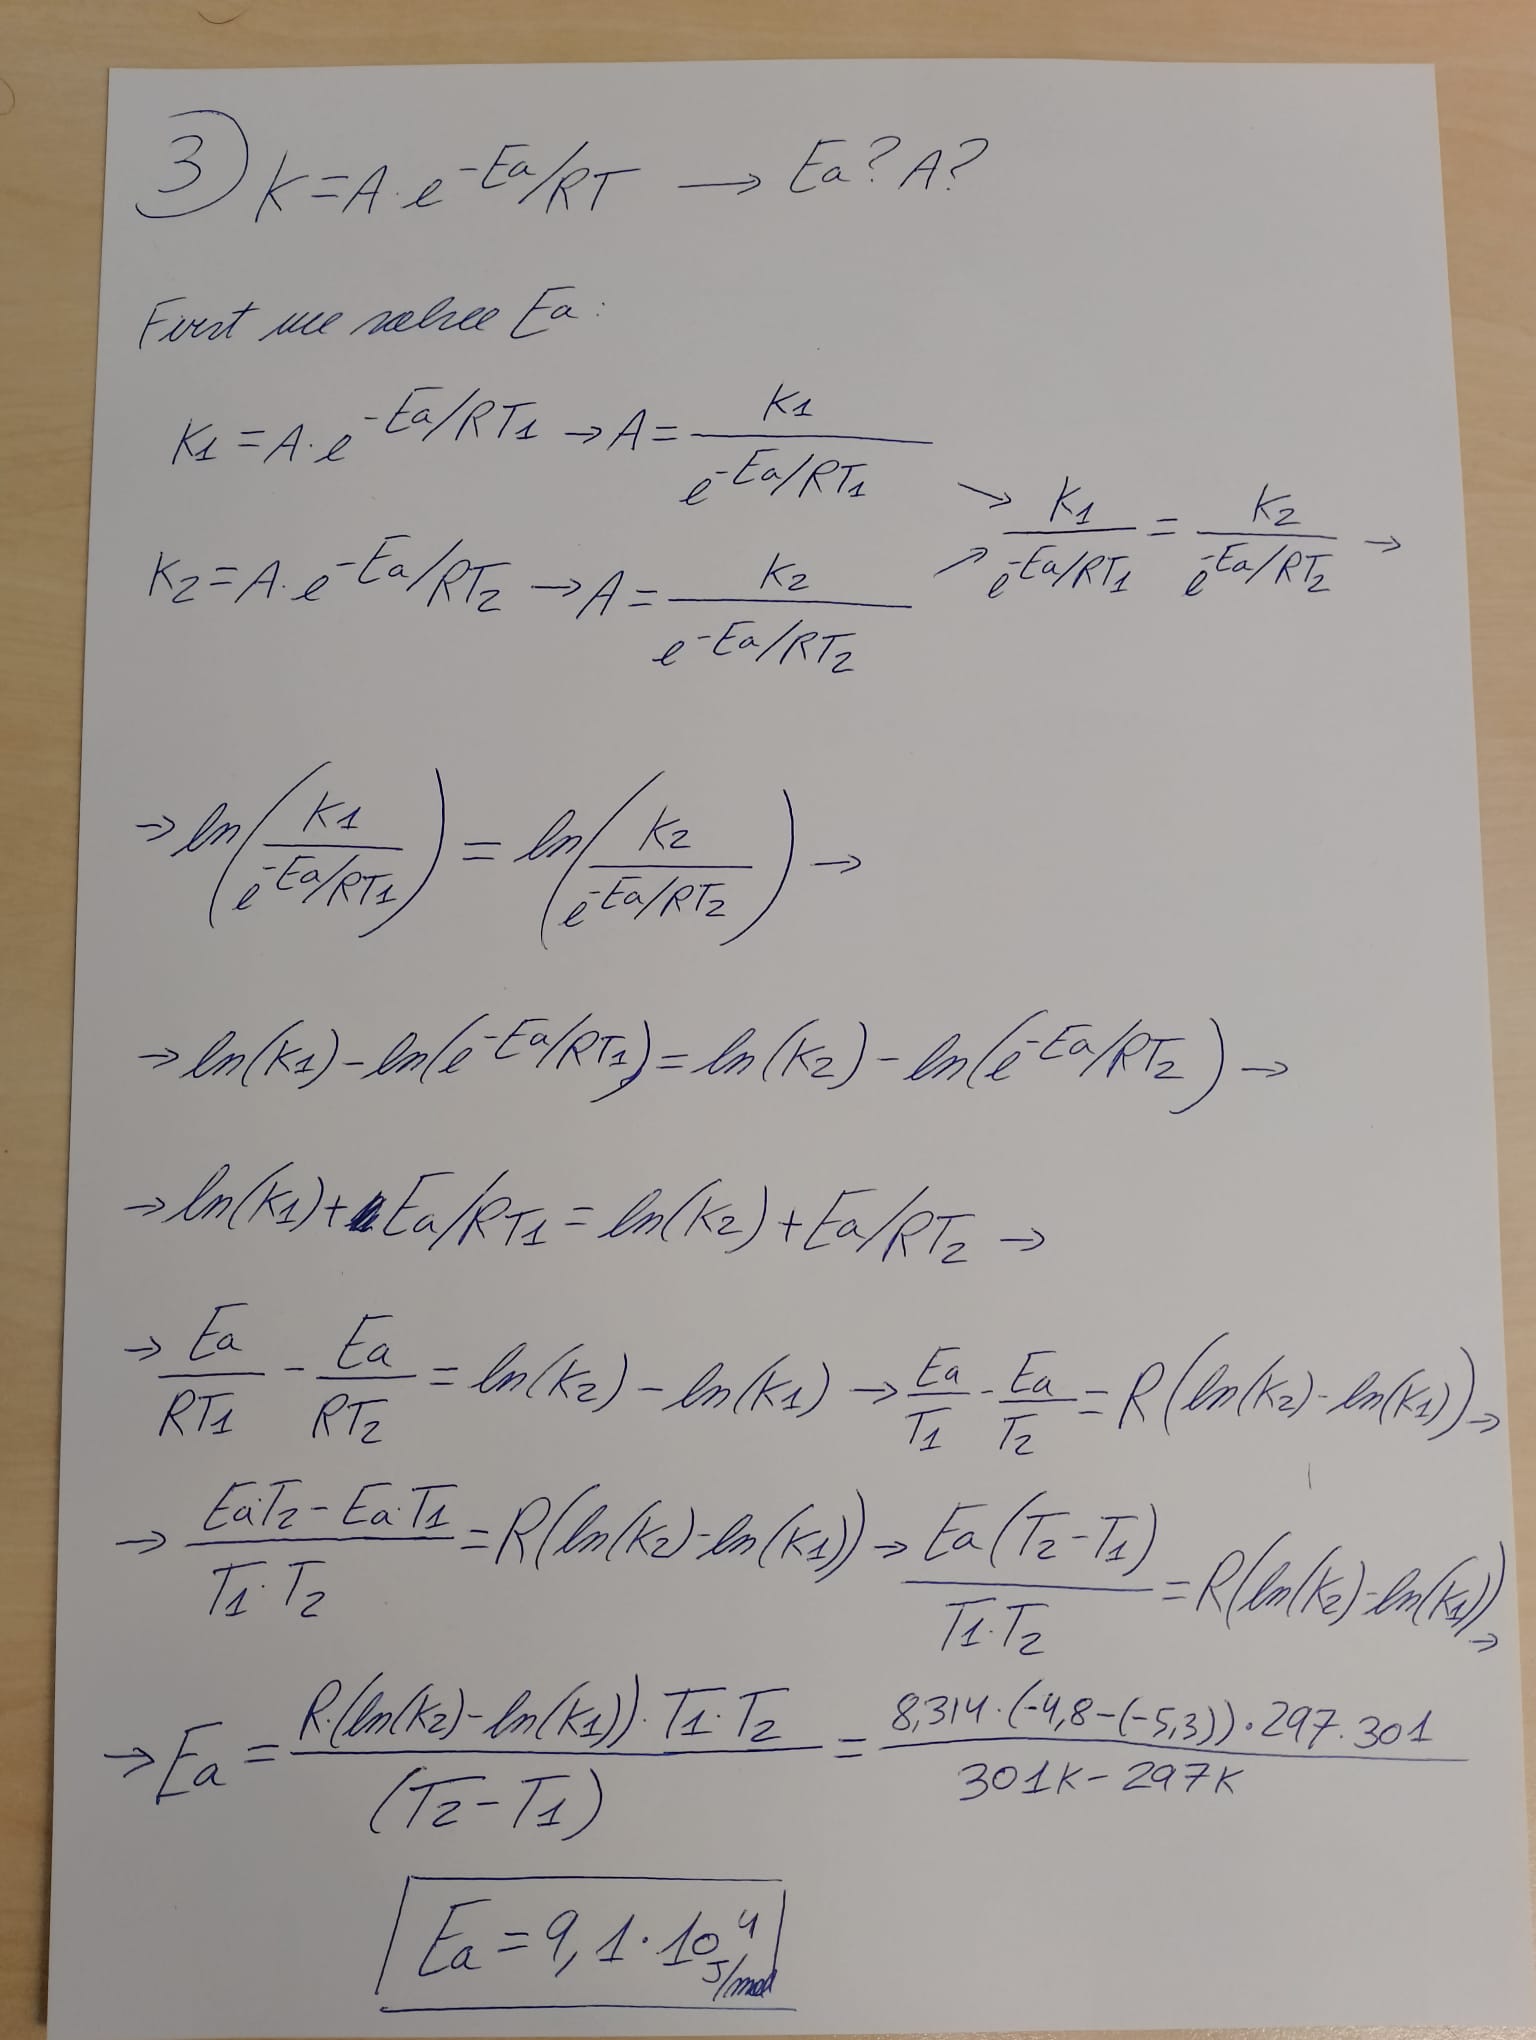 3) K=A·e^-Ea/RT → Ea? A?
First we solve Ea:
K1=A·e^-Ea/RT1 → A= K1 / e^-Ea/RT1
K2=A·e^-Ea/RT2 → A= K2 / e^-Ea/RT2
→ K1 / e^-Ea/RT1 = K2 / e^-Ea/RT2 →
→ ln(K1 / e^-Ea/RT1) = ln(K2 / e^-Ea/RT2) →
→ ln(K1)-ln(e^-Ea/RT1)=ln(K2)-ln(e^-Ea/RT2) →
→ ln(K1)+Ea/RT1=ln(K2)+Ea/RT2 →
→ Ea/RT1 - Ea/RT2 = ln(K2)-ln(K1) → Ea/T1 - Ea/T2 = R(ln(K2)-ln(K1)) →
→ Ea·T2-Ea·T1 / T1·T2 = R(ln(K2)-ln(K1)) → Ea(T2-T1) / T1·T2 = R(ln(K2)-ln(K1)) →
→ Ea = R·(ln(K2)-ln(K1))·T1·T2 / (T2-T1) = 8,314·(-4,8-(-5,3))·297·301 / 301K-297K
Ea=9,1·10^4 J/mol